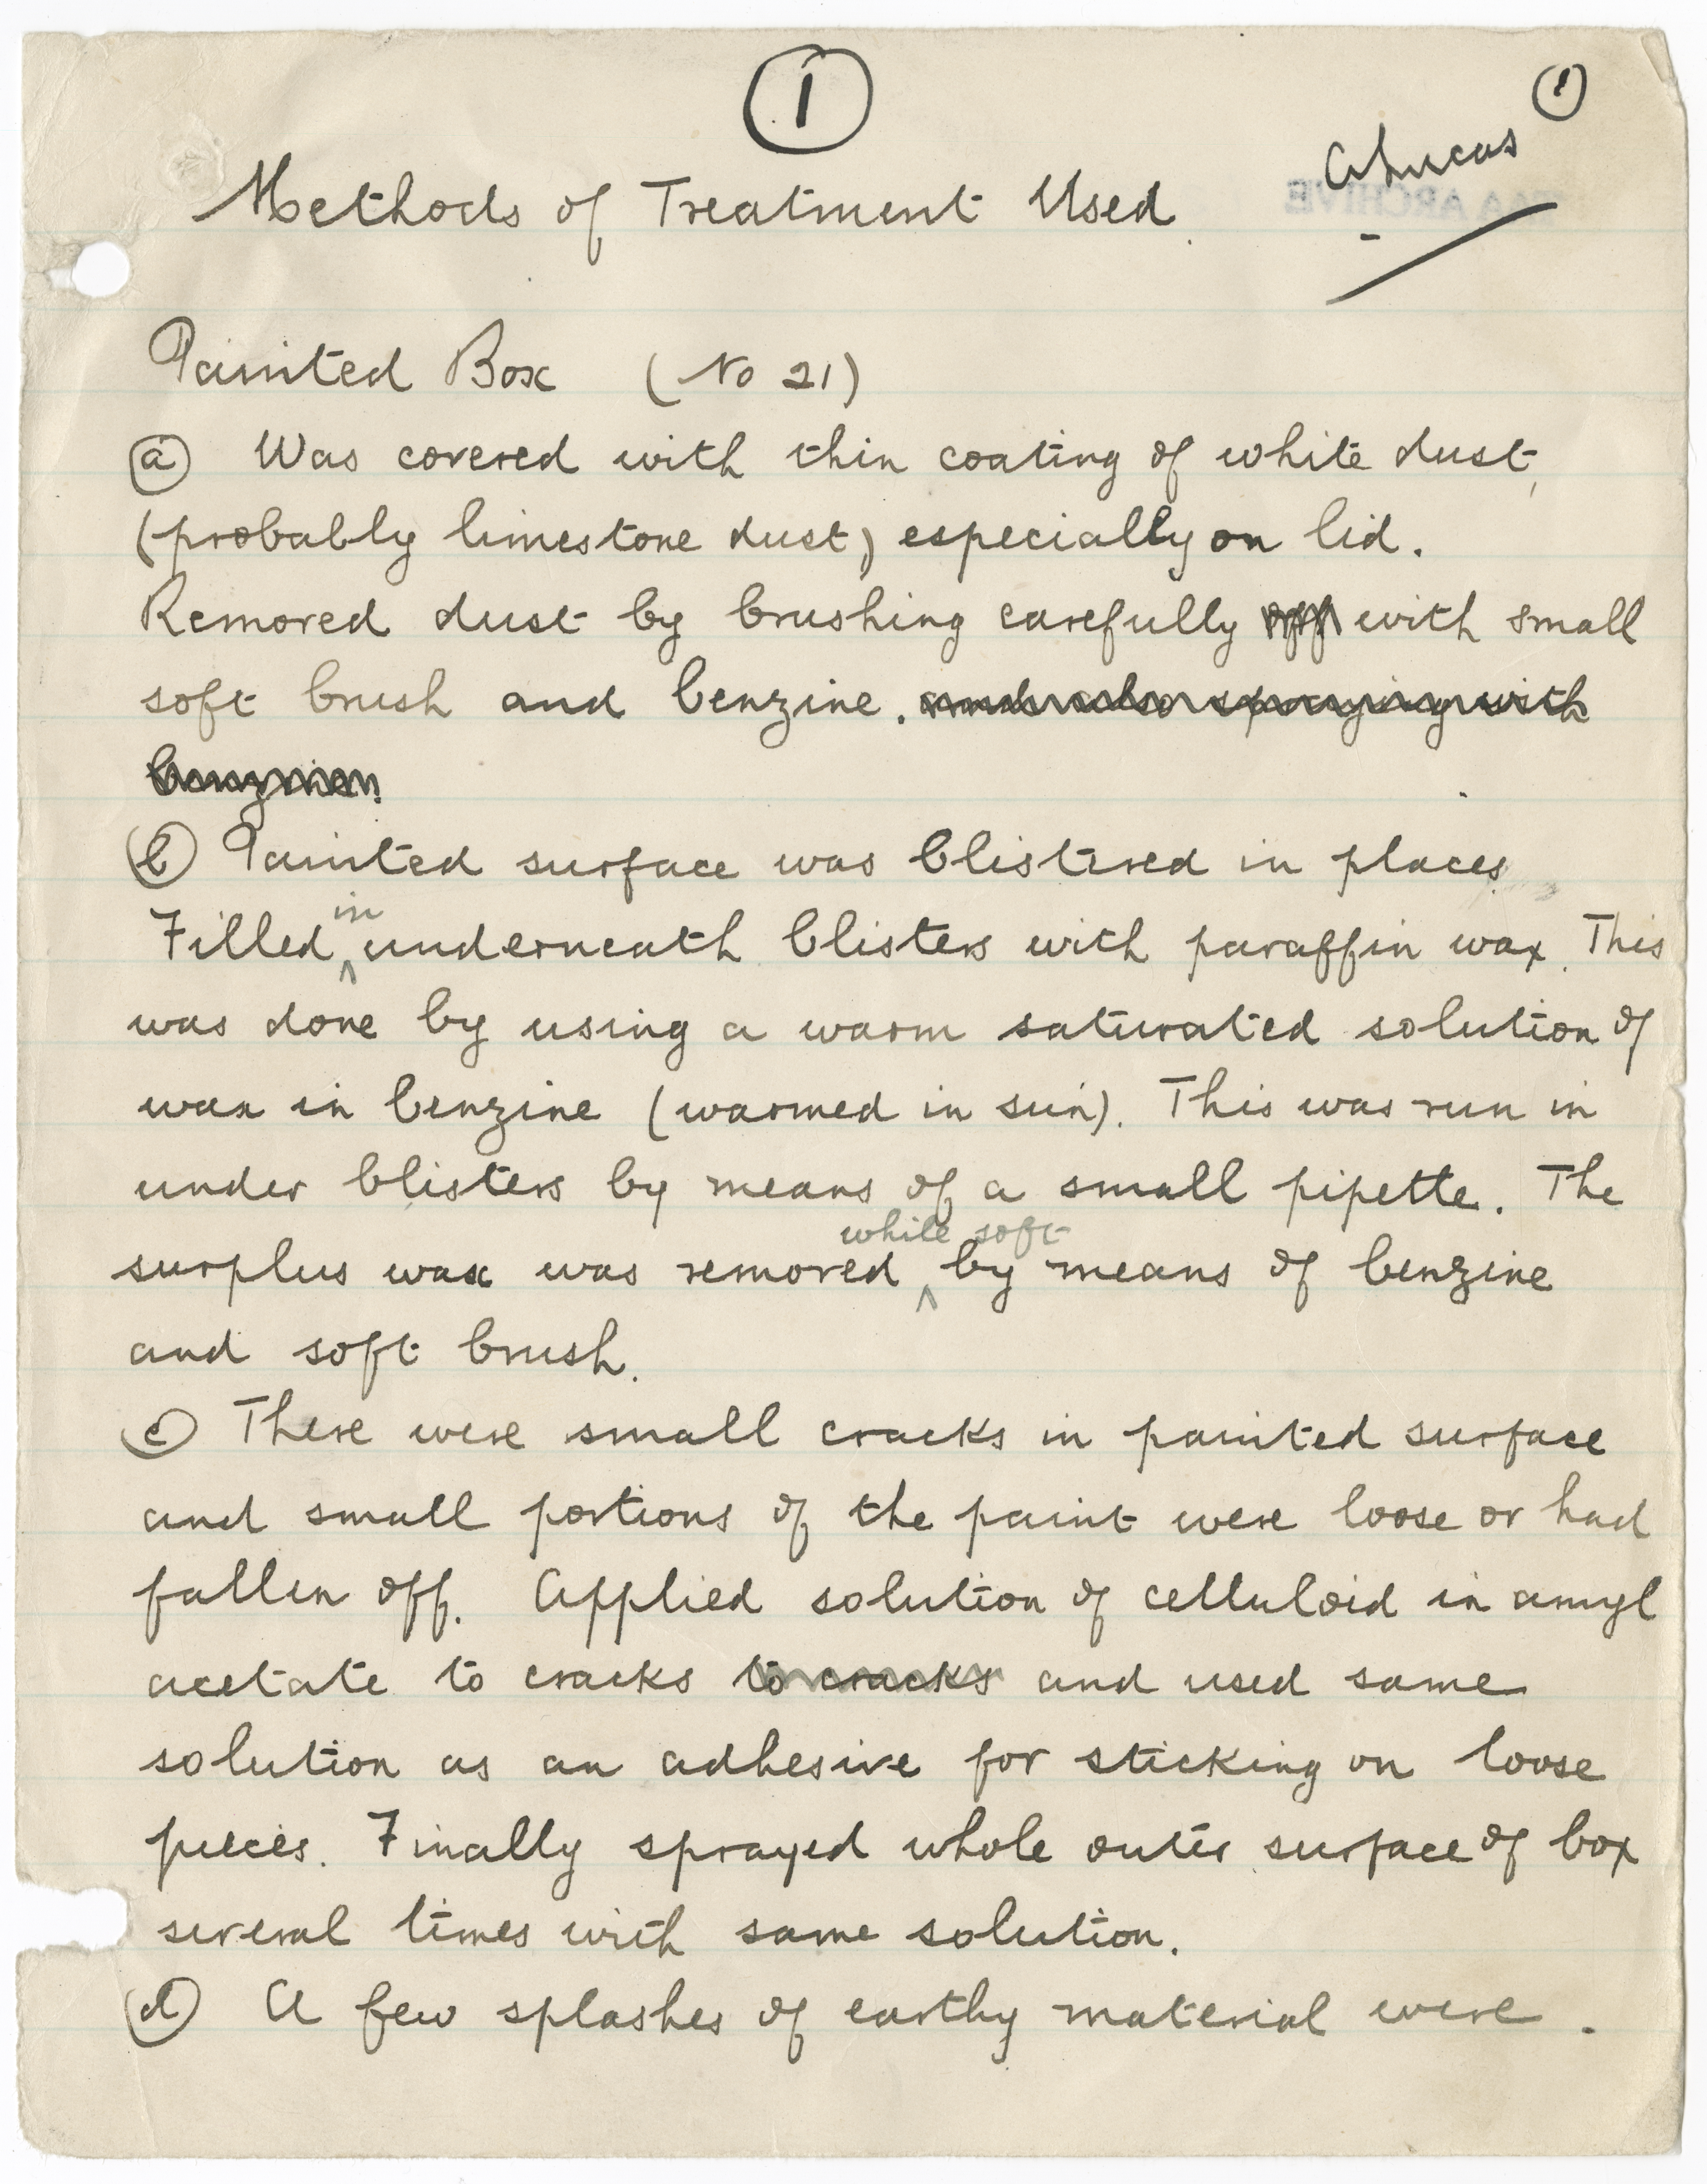 1
1
A Lucas
Methods of Treatment Used.
Painted Box (No 21)
a Was covered with thin coating of white dust,
(probably limestone dust) especially on lid.
Removed dust by brushing carefully off with small
soft brush and benzine. and also spraying with
benzine.
b Painted surface was blistered in places
in
Filled ^ underneath blisters with paraffin wax. This
was done by using a warm saturated solution of
wax in benzine (warmed in sun). This was run in
under blisters by means of a small pipette. The
while soft
surplus wax was removed ^ by means of benzine
and soft brush.
c There were small cracks in painted surface
and small portions of the paint were loose or had
fallen off. Applied solution of celluloid in amyl
acetate to cracks to cracks and used same
solution as an adhesive for sticking on loose
pieces. Finally sprayed whole outer surface of box
several times with same solution.
d A few splashes of earthy material were